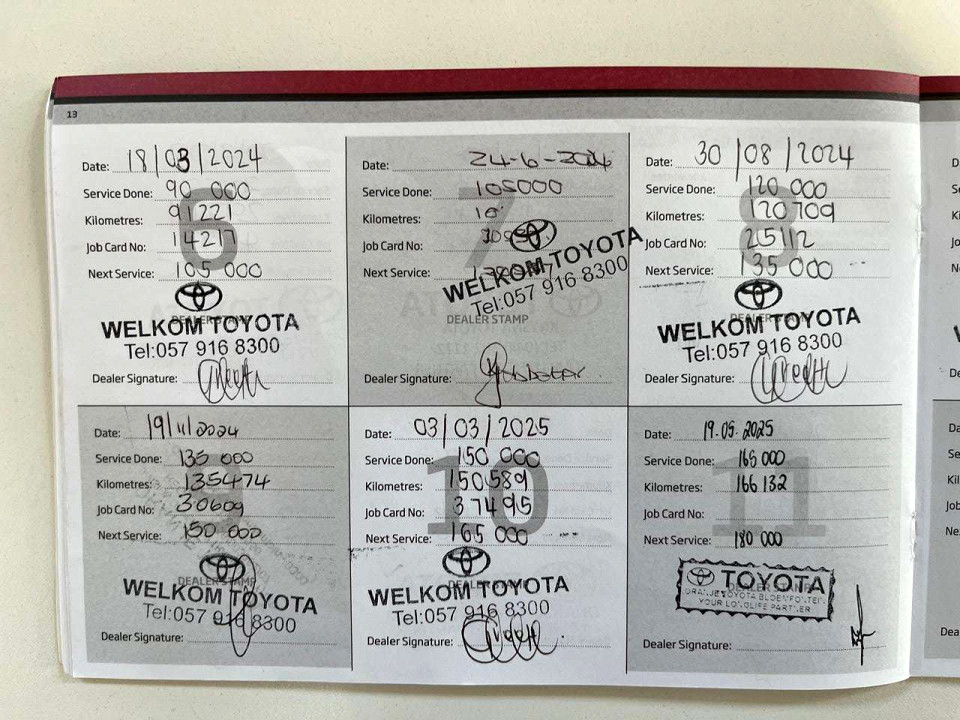 13
6
Date: 18/03/2024
Service Done: 90 000
Kilometres: 91221
Job Card No: 14217
Next Service: 105 000
DEALER STAMP
WELKOM TOYOTA
Tel:057 916 8300
Dealer Signature:
7
Date: 24-6-2024
Service Done: 105000
Kilometres:
Job Card No:
Next Service:
WELKOM TOYOTA
Tel:057 916 8300
DEALER STAMP
Dealer Signature:
8
Date: 30/08/2024
Service Done: 120 000
Kilometres: 120709
Job Card No: 25112
Next Service: 135 000
DEALER STAMP
WELKOM TOYOTA
Tel:057 916 8300
Dealer Signature:
Date: 19/11/2024
Service Done: 135 000
Kilometres: 135474
Job Card No: 30609
Next Service: 150 000
DEALER STAMP
WELKOM TOYOTA
Tel:057 916 8300
Dealer Signature:
10
Date: 03/03/2025
Service Done: 150 000
Kilometres: 150589
Job Card No: 37495
Next Service: 165 000
DEALER STAMP
WELKOM TOYOTA
Tel:057 916 8300
Dealer Signature:
11
Date: 19.05.2025
Service Done: 165 000
Kilometres: 166 132
Job Card No:
Next Service: 180 000
TOYOTA
DEALER STAMP
ORANJE TOYOTA BLOEMFONTEIN
YOUR LONGLIFE PARTNER
Dealer Signature: